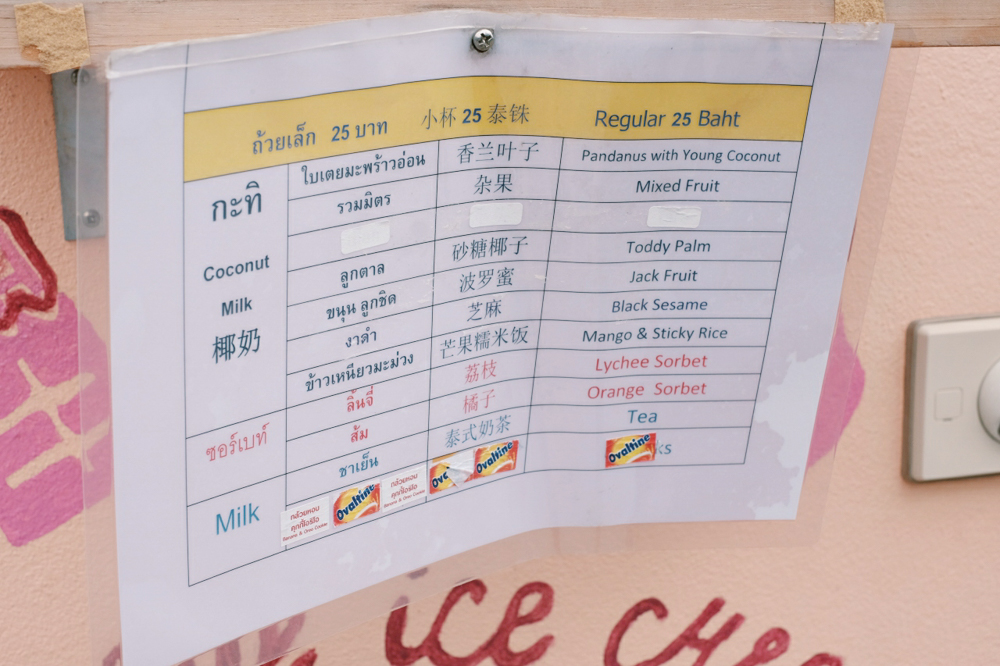 ถ้วยเล็ก 25 บาท 小杯 25 泰铢 Regular 25 Baht
กะทิ
Coconut
Milk
椰奶
ใบเตยมะพร้าวอ่อน 香兰叶子 Pandanus with Young Coconut
รวมมิตร 杂果 Mixed Fruit
ลูกตาล 砂糖椰子 Toddy Palm
ขนุน ลูกชิด 波罗蜜 Jack Fruit
งาดำ 芝麻 Black Sesame
ข้าวเหนียวมะม่วง 芒果糯米饭 Mango & Sticky Rice
ซอร์เบท์
ลิ้นจี่ 荔枝 Lychee Sorbet
ส้ม 橘子 Orange Sorbet
Milk
ชาเย็น 泰式奶茶 Tea
กล้วยหอม คุกกี้โอรีโอ Banana & Oreo Cookie Ovaltine กล้วยหอม คุกกี้โอรีโอ Banana & Oreo Cookie Ovaltine Ovaltine ks
ice